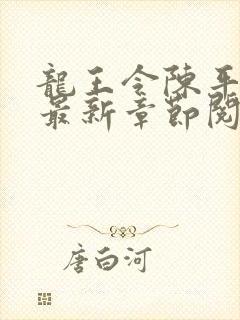 龍王令陳平
最新章節閱
唐白河